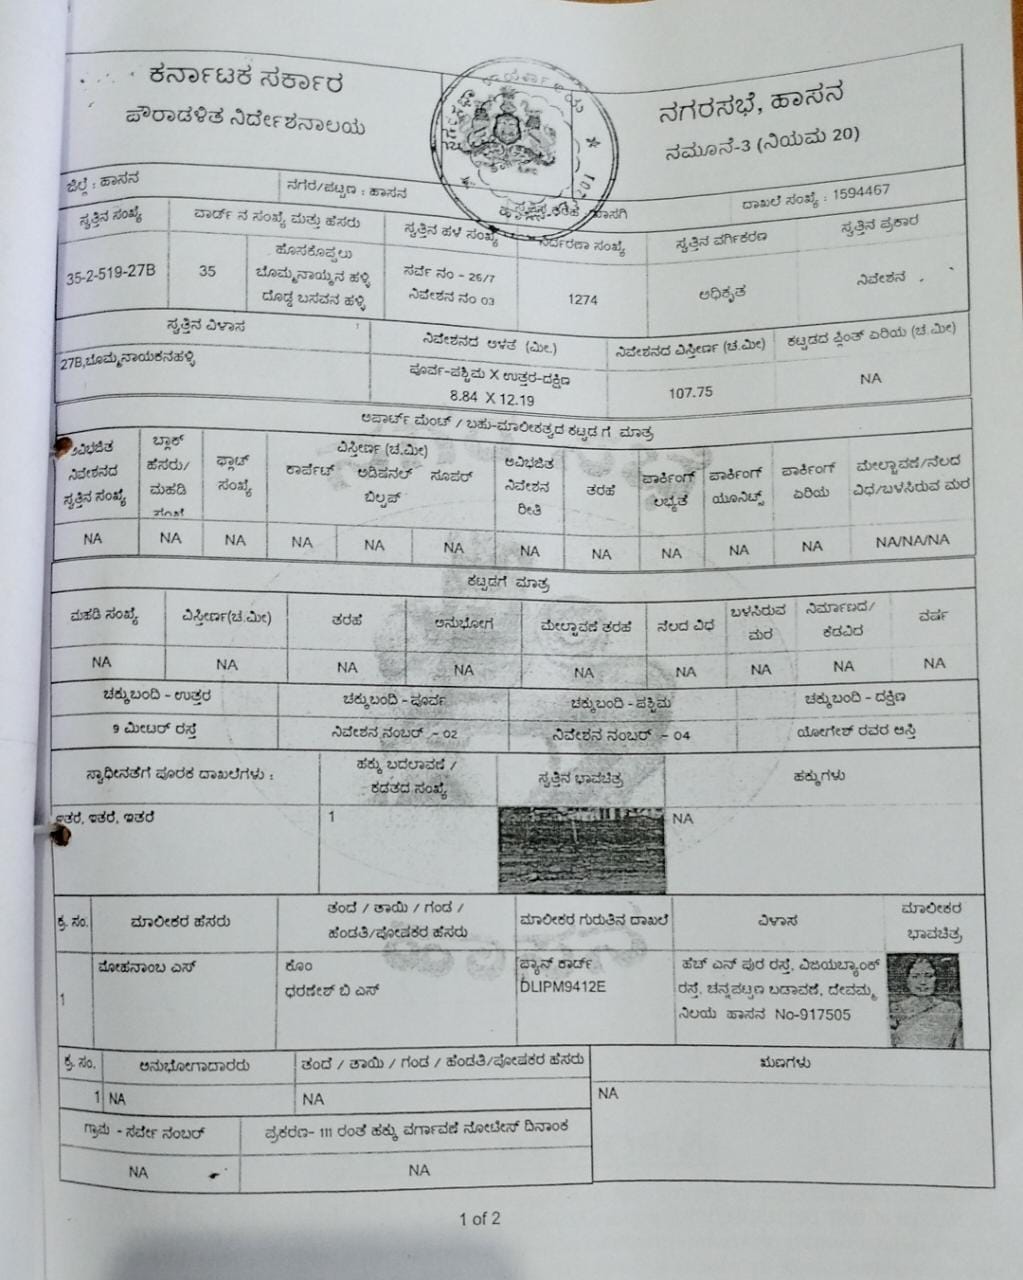 ಕರ್ನಾಟಕ ಸರ್ಕಾರ
ಪೌರಾಡಳಿತ ನಿರ್ದೇಶನಾಲಯ
ನಗರಸಭೆ, ಹಾಸನ
ನಮೂನೆ-3 (ನಿಯಮ 20)
ಜಿಲ್ಲೆ : ಹಾಸನ
ನಗರ/ಪಟ್ಟಣ : ಹಾಸನ
ದಾಖಲೆ ಸಂಖ್ಯೆ : 1594467
ಸ್ವತ್ತಿನ ಸಂಖ್ಯೆ ವಾರ್ಡ್ ನ ಸಂಖ್ಯೆ ಮತ್ತು ಹೆಸರು ಸ್ವತ್ತಿನ ಹಳೆ ಸಂಖ್ಯೆ ನಿರ್ದರಣಾ ಸಂಖ್ಯೆ ಸ್ವತ್ತಿನ ವರ್ಗಿಕರಣ ಸ್ವತ್ತಿನ ಪ್ರಕಾರ
35-2-519-27B
35
ಹೊಸಕೊಪ್ಪಲು
ಬೊಮ್ಮನಾಯ್ಕನ ಹಳ್ಳಿ
ದೊಡ್ಡ ಬಸವನ ಹಳ್ಳಿ
ಸರ್ವೆ ನಂ - 26/7
ನಿವೇಶನ ನಂ 03
1274
ಅಧಿಕೃತ
ನಿವೇಶನ
ಸ್ವತ್ತಿನ ವಿಳಾಸ ನಿವೇಶನದ ಅಳತೆ (ಮೀ.) ನಿವೇಶನದ ವಿಸ್ತೀರ್ಣ (ಚ.ಮೀ) ಕಟ್ಟಡದ ಪ್ಲಿಂತ್ ಏರಿಯ (ಚ.ಮೀ)
27B,ಬೊಮ್ಮನಾಯಕನಹಳ್ಳಿ
ಪೂರ್ವ-ಪಶ್ಚಿಮ X ಉತ್ತರ-ದಕ್ಷಿಣ
8.84 X 12.19
107.75
NA
ಅಪಾರ್ಟ್ ಮೆಂಟ್ / ಬಹು-ಮಾಲೀಕತ್ವದ ಕಟ್ಟಡ ಗೆ ಮಾತ್ರ
ಅವಿಭಜಿತ
ನಿವೇಶನದ
ಸ್ವತ್ತಿನ ಸಂಖ್ಯೆ
ಬ್ಲಾಕ್
ಹೆಸರು/
ಮಹಡಿ
ಫ್ಲಾಟ್
ಸಂಖ್ಯೆ
ವಿಸ್ತೀರ್ಣ (ಚ.ಮೀ)
ಕಾರ್ಪೆಟ್ ಅಡಿಷನಲ್ ಸೂಪರ್
ಬಿಲ್ಟಪ್
ಅವಿಭಜಿತ
ನಿವೇಶನ
ರೀತಿ
ತರಹೆ
ಪಾರ್ಕಿಂಗ್
ಲಭ್ಯತೆ
ಪಾರ್ಕಿಂಗ್
ಯೂನಿಟ್ಸ್
ಪಾರ್ಕಿಂಗ್
ಏರಿಯ
ಮೇಲ್ಚಾವಣಿ/ನೆಲದ
ವಿಧ/ಬಳಸಿರುವ ಮರ
NA NA NA NA NA NA NA NA NA NA NA NA/NA/NA
ಕಟ್ಟಡಗೆ ಮಾತ್ರ
ಮಹಡಿ ಸಂಖ್ಯೆ ವಿಸ್ತೀರ್ಣ(ಚ.ಮೀ) ತರಹೆ ಅನುಭೋಗ ಮೇಲ್ಚಾವಣಿ ತರಹೆ ನೆಲದ ವಿಧ
ಬಳಸಿರುವ
ಮರ
ನಿರ್ಮಾಣದ/
ಕೆಡವಿದ
ವರ್ಷ
NA NA NA NA NA NA NA NA NA
ಚಕ್ಕುಬಂದಿ - ಉತ್ತರ ಚಕ್ಕುಬಂದಿ - ಪೂರ್ವ ಚಕ್ಕುಬಂದಿ - ಪಶ್ಚಿಮ ಚಕ್ಕುಬಂದಿ - ದಕ್ಷಿಣ
9 ಮೀಟರ್ ರಸ್ತೆ ನಿವೇಶನ ನಂಬರ್ - 02 ನಿವೇಶನ ನಂಬರ್ - 04 ಯೋಗೇಶ್ ರವರ ಆಸ್ತಿ
ಸ್ವಾಧೀನತೆಗೆ ಪೂರಕ ದಾಖಲೆಗಳು :
ಹಕ್ಕು ಬದಲಾವಣೆ /
ಕಡತದ ಸಂಖ್ಯೆ
ಸ್ವತ್ತಿನ ಭಾವಚಿತ್ರ
ಹಕ್ಕುಗಳು
ಇತರೆ, ಇತರೆ, ಇತರೆ
1
NA
ಕ್ರ. ಸಂ. ಮಾಲೀಕರ ಹೆಸರು
ತಂದೆ / ತಾಯಿ / ಗಂಡ /
ಹೆಂಡತಿ/ಪೋಷಕರ ಹೆಸರು
ಮಾಲೀಕರ ಗುರುತಿನ ದಾಖಲೆ
ವಿಳಾಸ
ಮಾಲೀಕರ
ಭಾವಚಿತ್ರ
1
ಮೋಹನಾಂಬ ಎಸ್
ಕೊಂ
ಧರಣೇಶ್ ಬಿ ಎಸ್
ಪ್ಯಾನ್ ಕಾರ್ಡ್
DLIPM9412E
ಹೆಚ್ ಎನ್ ಪುರ ರಸ್ತೆ, ವಿಜಯಬ್ಯಾಂಕ್
ರಸ್ತೆ, ಚನ್ನಪಟ್ಟಣ ಬಡಾವಣೆ, ದೇವಮ್ಮ
ನಿಲಯ ಹಾಸನ No-917505
ಕ್ರ. ಸಂ. ಅನುಭೋಗಾದಾರರು ತಂದೆ / ತಾಯಿ / ಗಂಡ / ಹೆಂಡತಿ/ಪೋಷಕರ ಹೆಸರು ಋಣಗಳು
1 NA NA NA
ಗ್ರಾಮ - ಸರ್ವೇ ನಂಬರ್ ಪ್ರಕರಣ- 111 ರಂತೆ ಹಕ್ಕು ವರ್ಗಾವಣೆ ನೋಟೀಸ್ ದಿನಾಂಕ
NA NA
1 of 2